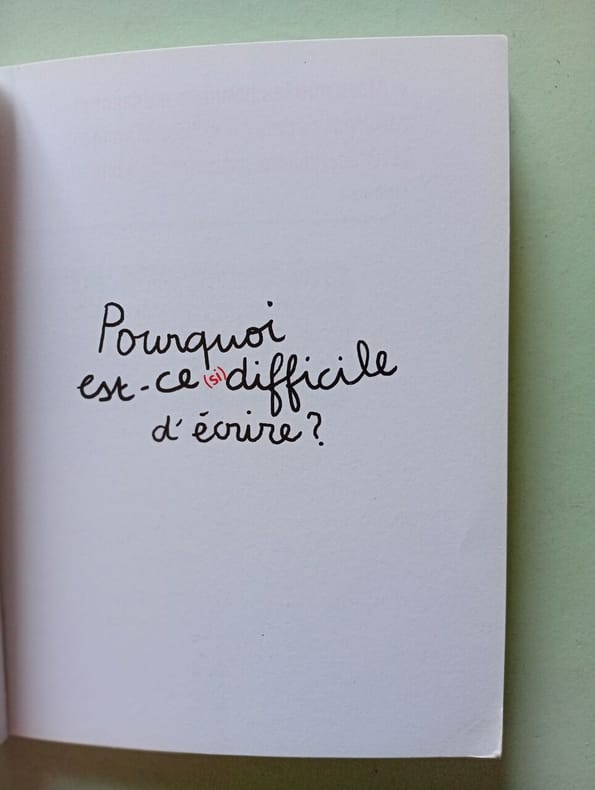 Pourquoi
est-ce (si) difficile
d'écrire?